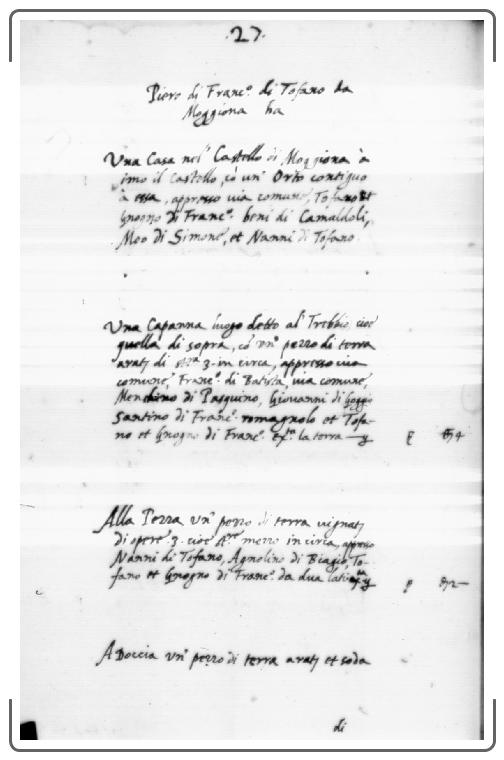 .27.
Piero di Franc.º di Tofano da
Moggiona ha
Una Casa nel Castello di Moggiona à
imo il Castello, cò un' Orto contiguo
à essa, appresso via comune, Tofano et
Gnogno di Franc.º beni di Camaldoli,
Meo di Simone, et Nanni di Tofano.
Una Capanna luogo detto al' Trebbio cioè
quella di sopra, cò un' pezzo di terra
arati di 3. in circa, appresso via
comune, Franc.º di Batista, via comune,
di Pasquino, Giovanni di Goggio
Santino di Franc.º romagnolo et Tofa-
no et Gnogno di Franc.º la terra
Alla Pezza un' pezzo di terra vignati
di opere 3. cioè mezzo in circa, appresso
Nanni di Tofano, Agnolino di Biagio, To-
fano et Gnogno di Franc.º da dua lati
A Doccia un' pezzo di terra arati et soda
di